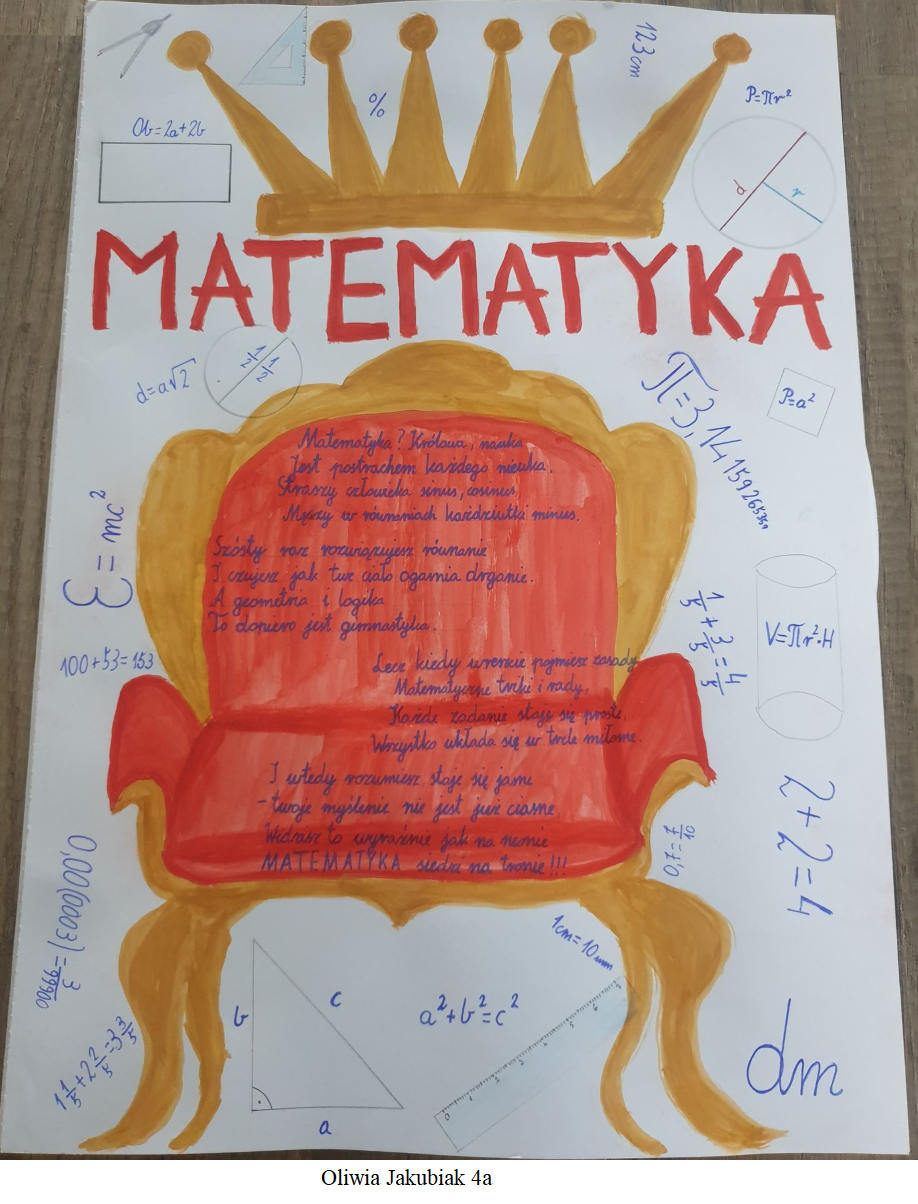 123 cm
%
P=πr²
Ob=2a+2b
d
r
MATEMATYKA
1/2
1/2
d=a√2
π=3,14159265359
P=a²
Matematyka? Królowa, nauka
Jest postrachem każdego nieuka.
Straszy człowieka sinus, cosinus,
Męczy w równaniach każdziutki minus.
Szósty raz rozwiązujesz równanie
I czujesz jak twe ciało ogarnia drganie.
A geometria i logika
To dopiero jest gimnastyka.
Lecz kiedy wreszcie pojmiesz zasady,
Matematyczne tricki i rady,
Każde zadanie staje się proste,
Wszystko układa się w tycle miłosne.
I wtedy rozumiesz, staje się jasne
- twoje myślenie nie jest już ciasne
Widzisz to wyraźnie jak na neonie
MATEMATYKA siedzi na tronie!!!
E=mc²
100+53=153
1/5+3/5=4/5
V=πr²·H
2+2=4
7/10=0,7
0,00(0003)=3/99900
1 1/5+2 2/5=3 3/5
1cm=10mm
b
c
a
a²+b²=c²
0 1 2 3 4 5 6
dm
Oliwia Jakubiak 4a